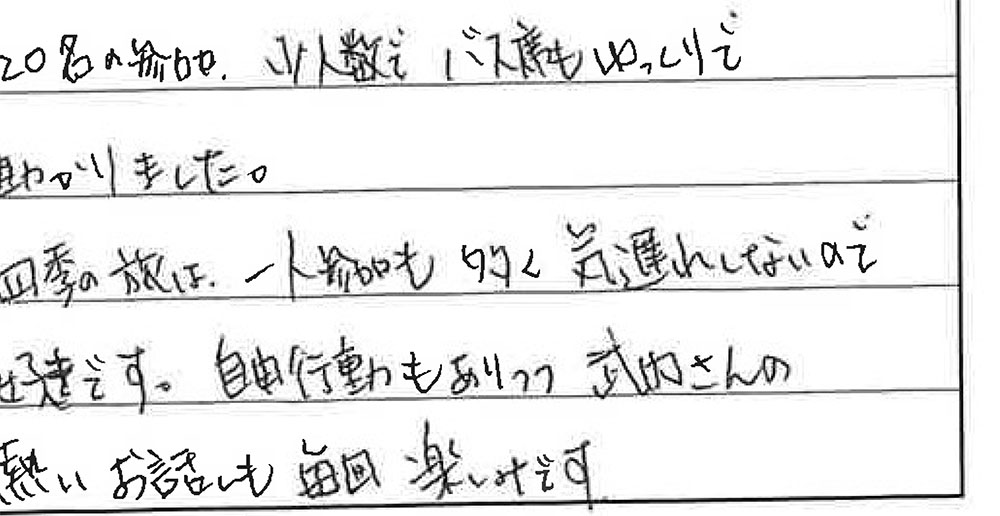 20名の参加、少人数で バス席もゆっくりで
助かりました。
四季の旅は、一人参加も多く 気遅れしないので
好きです。自由行動もありつつ 武内さんの
熱い お話しも 毎回 楽しみです